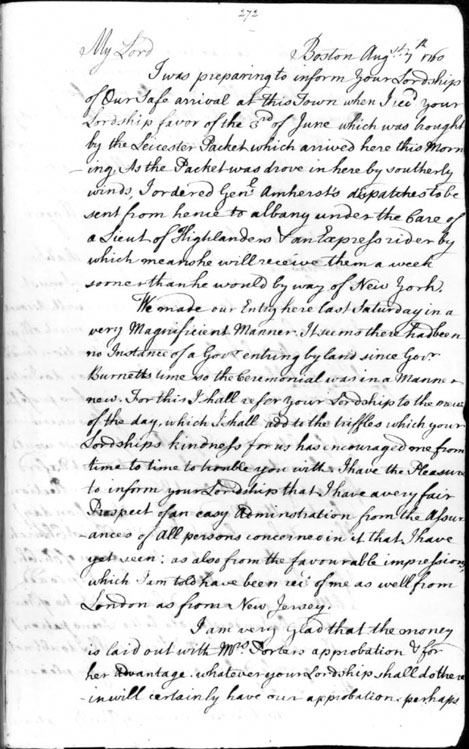 272
My Lord Boston Augst 7th 1760
I was preparing to inform Your Lordships
of Our Safe arrival at this Town when I recd your
Lordship favor of the 3rd of June which was brought
by the Leicester Packet which arrived here this Morn
-ing, As the Packet was drove in here by southerly
winds, I ordered Genl Amherst's dispatches to be
sent from hence to albany under the Care of
a Lieut of Highlanders & an Express rider by
which means he will receive them a week
sooner than he would by way of New York.
We made our Entry here last Saturday in a
very Magnificent Manner. It seems there had been
no Instance of a Govr entring by land since Govr
Burnetts time so the Ceremonial was in a Manner
new. For this I shall refer your Lordship to the
of the day, which I shall add to the triffles which your
Lordships kindness for us has encouraged me from
time to time to trouble you with. I have the Pleasure
to inform your Lordship that I have a very fair
Prospect of an easy Adminstration from the Assur
-ances of All persons concerned in it that I have
yet seen: as also from the favourable impressions
which I am told have been recd of me as well from
London as from New Jersey.
I am very glad that the money
is laid out with Mrs Porters approbation & for
her Advantage. whatever your Lordship shall do there
-in will certainly have our approbation. perhaps